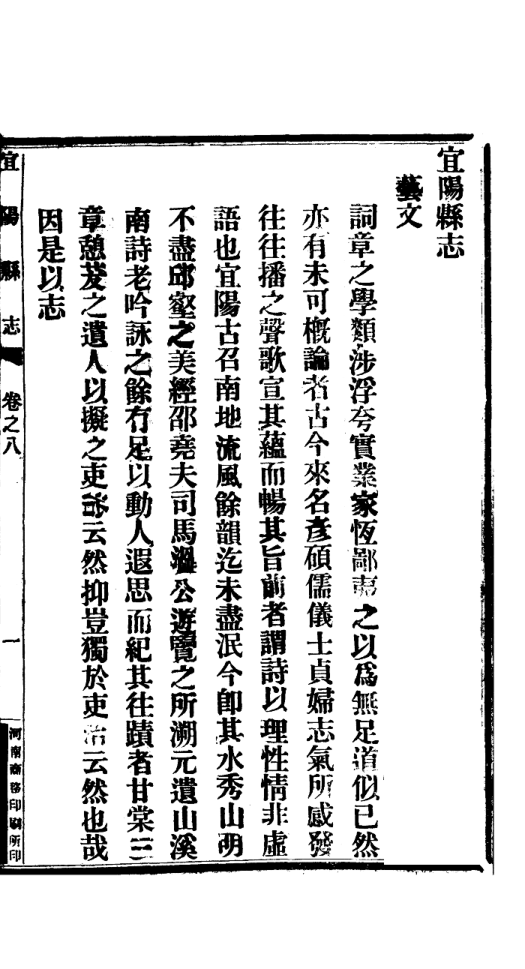 宜陽縣志
藝文
詞章之學類涉浮夸實業家恆鄙夷之以爲無足道似已然
亦有未可槪論者古今來名彥碩儒儀士貞婦志氣所感發
往往播之聲歌宣其蘊而暢其旨前者謂詩以理性情非虛
語也宜陽古召南地流風餘韻迄未盡泯今卽其水秀山明
不盡邱壑之美經邵堯夫司馬溫公遊覽之所溯元遺山溪
南詩老吟詠之餘有足以動人遐思而紀其往蹟者甘棠三
章憩茇之遺人以擬之吏云然抑豈獨於吏治云然也哉
因是以志
宜陽縣志
卷之八
一
河南商務印刷所印